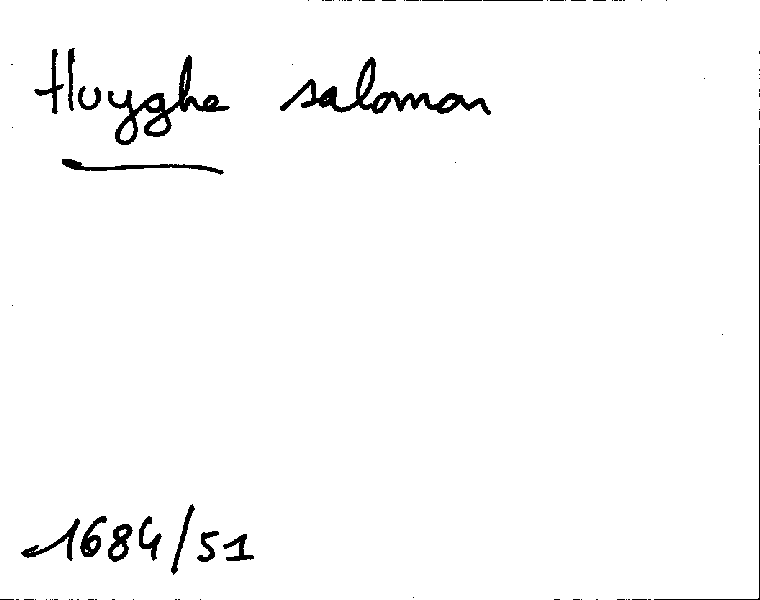 Huyghe salomon
1684/51